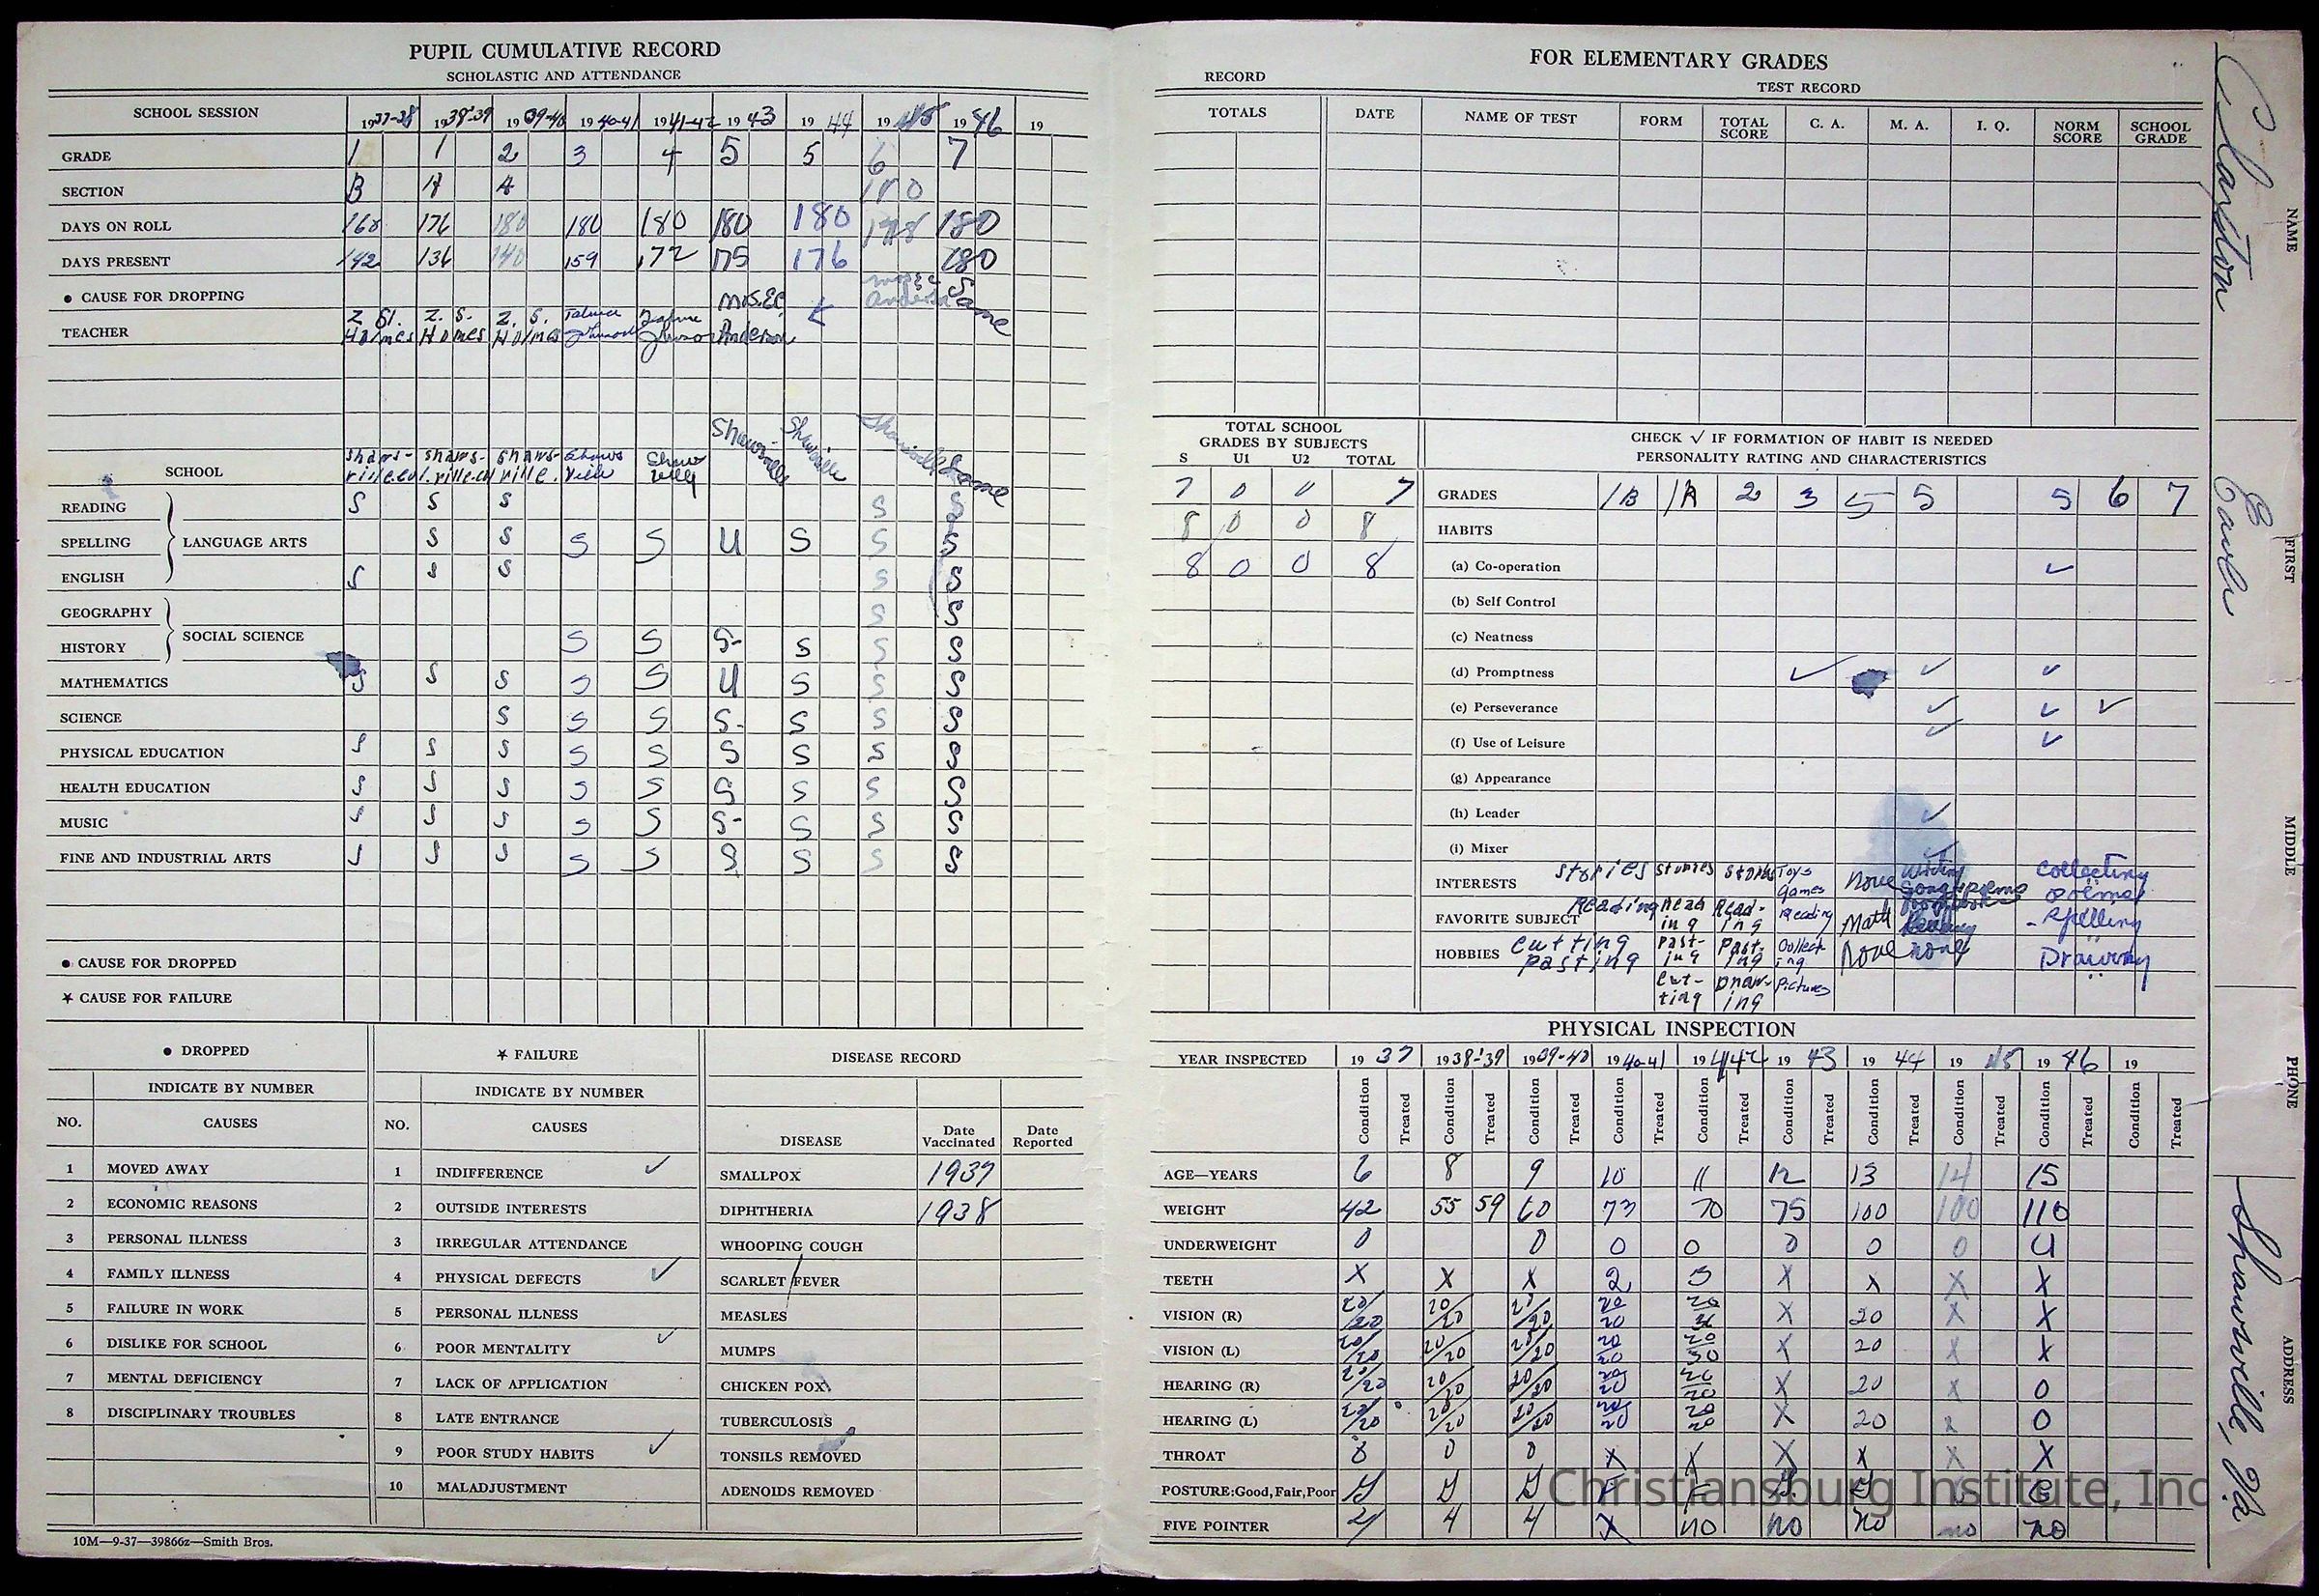 PUPIL CUMULATIVE RECORD
SCHOLASTIC AND ATTENDANCE
SCHOOL SESSION 1937-38 1938-39 1939-40 1940-41 1941-42 1943 1944 1945 1946 19
GRADE 1 1 2 3 4 5 5 6 7
SECTION B A A 180
DAYS ON ROLL 168 176 180 180 180 180 180 178 180
DAYS PRESENT 142 136 140 159 172 175 176 180
• CAUSE FOR DROPPING
TEACHER Z. S. Holmes Z. S. Holmes Z. S. Holmes Mrs. E.C. Anderson Same
SCHOOL Shawsville Shawsville Shawsville. Shawsville Shawsville Shawsville Shawsville Same
READING S S S S S
SPELLING LANGUAGE ARTS S S S S U S S S
ENGLISH S S S S S
GEOGRAPHY S S
HISTORY SOCIAL SCIENCE S S S- S S S
MATHEMATICS S S S S S U S S S
SCIENCE S S S S- S S S
PHYSICAL EDUCATION S S S S S S S S S
HEALTH EDUCATION S S S S S S S S S
MUSIC S S S S S S- S S S
FINE AND INDUSTRIAL ARTS S S S S S S S S S
• CAUSE FOR DROPPED
★ CAUSE FOR FAILURE
• DROPPED
INDICATE BY NUMBER
NO. CAUSES
1 MOVED AWAY
2 ECONOMIC REASONS
3 PERSONAL ILLNESS
4 FAMILY ILLNESS
5 FAILURE IN WORK
6 DISLIKE FOR SCHOOL
7 MENTAL DEFICIENCY
8 DISCIPLINARY TROUBLES
★ FAILURE
INDICATE BY NUMBER
NO. CAUSES
1 INDIFFERENCE ✓
2 OUTSIDE INTERESTS
3 IRREGULAR ATTENDANCE
4 PHYSICAL DEFECTS ✓
5 PERSONAL ILLNESS
6 POOR MENTALITY ✓
7 LACK OF APPLICATION
8 LATE ENTRANCE
9 POOR STUDY HABITS ✓
10 MALADJUSTMENT
DISEASE RECORD
DISEASE Date Vaccinated Date Reported
SMALLPOX 1937
DIPHTHERIA 1938
WHOOPING COUGH
SCARLET FEVER
MEASLES
MUMPS
CHICKEN POX
TUBERCULOSIS
TONSILS REMOVED
ADENOIDS REMOVED
10M—9-37—39866z—Smith Bros.
FOR ELEMENTARY GRADES
RECORD
TEST RECORD
TOTALS DATE NAME OF TEST FORM TOTAL SCORE C. A. M. A. I. Q. NORM SCORE SCHOOL GRADE
TOTAL SCHOOL
GRADES BY SUBJECTS
S U1 U2 TOTAL
7 0 0 7
8 0 0 8
8 0 0 8
CHECK ✓ IF FORMATION OF HABIT IS NEEDED
PERSONALITY RATING AND CHARACTERISTICS
GRADES 1B 1A 2 3 5 5 5 6 7
HABITS
(a) Co-operation ✓
(b) Self Control
(c) Neatness
(d) Promptness ✓ ✓ ✓
(e) Perseverance ✓ ✓ ✓
(f) Use of Leisure ✓ ✓
(g) Appearance
(h) Leader ✓
(i) Mixer ✓
INTERESTS stories stories stories Toys Games None Writing Song poems Collecting poems
FAVORITE SUBJECT Reading Reading Reading Reading Math Spelling
HOBBIES cutting pasting Pasting cutting Pasting Drawing Collecting Pictures None none Drawing
PHYSICAL INSPECTION
YEAR INSPECTED 1937 1938-39 1939-40 1940-41 1941-42 1943 1944 1945 1946 19
Condition Treated Condition Treated Condition Treated Condition Treated Condition Treated Condition Treated Condition Treated Condition Treated Condition Treated Condition Treated
AGE—YEARS 6 8 9 10 11 12 13 14 15
WEIGHT 42 55 59 60 73 70 75 100 100 110
UNDERWEIGHT 0 0 0 0 0 0 0 U
TEETH X X X 2 3 X X X X
VISION (R) 20/20 20/20 20/20 20/20 X 20 X X
VISION (L) 20/20 20/20 20/20 20/20 20/30 X 20 X X
HEARING (R) 20/20 20/20 20/20 20/20 20/20 X 20 X 0
HEARING (L) 20/20 20/20 20/20 20/20 20/20 X 20 X 0
THROAT 0 0 X X X X X X
POSTURE: Good, Fair, Poor G G G F F G G G
FIVE POINTER 4 4 X no no no no no
NAME Clayton
FIRST
MIDDLE
PHONE
ADDRESS Shawsville, Va
Christiansburg Institute, Inc